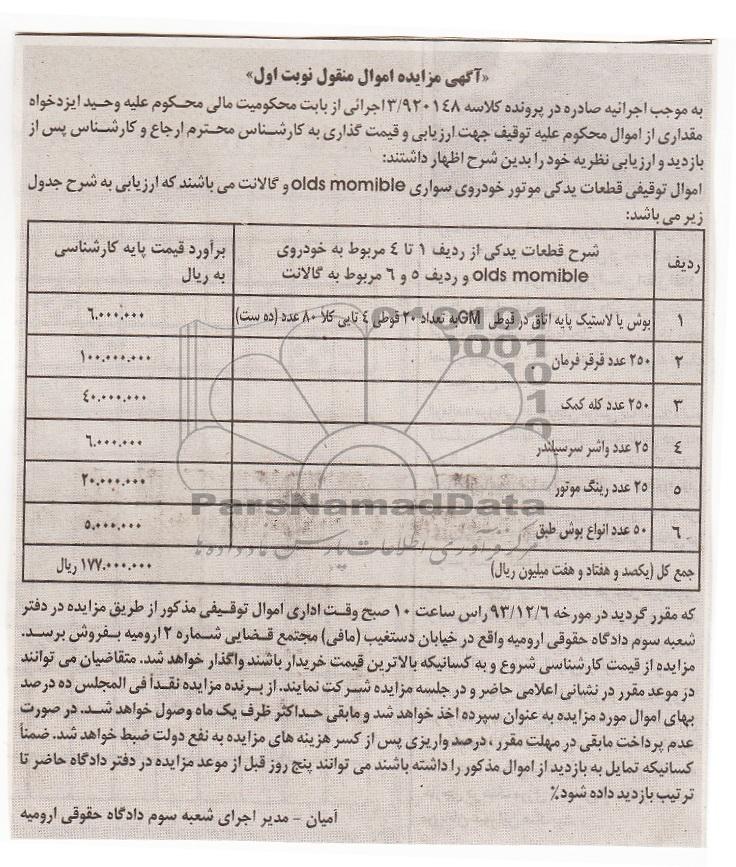 «آگهی مزایده اموال منقول نوبت اول»
به موجب اجرائیه صادره در پرونده کلاسه ۳/۹۲۰۱۴۸ اجرائی از بابت محکومیت مالی محکوم علیه وحید ایزدخواه
مقداری از اموال محکوم علیه توقیف جهت ارزیابی و قیمت گذاری به کارشناس محترم ارجاع و کارشناس پس از
بازدید و ارزیابی نظریه خود را بدین شرح اظهار داشتند:
اموال توقیفی قطعات یدکی موتور خودروی سواری olds momible و گالانت می باشند که ارزیابی به شرح جدول
زیر می باشد:
ردیف
شرح قطعات یدکی از ردیف ۱ تا ۴ مربوط به خودروی
olds momible و ردیف ۵ و ۶ مربوط به گالانت
برآورد قیمت پایه کارشناسی
به ریال
۱ بوش یا لاستیک پایه اتاق در قوطی GM به تعداد ۲۰ قوطی ۴ تایی کلا ۸۰ عدد (ده ست) ۶.۰۰۰.۰۰۰
۲ ۲۵۰ عدد قرقر فرمان ۱۰۰.۰۰۰.۰۰۰
۳ ۲۵۰ عدد کله کمک ۴۰.۰۰۰.۰۰۰
۴ ۲۵ عدد واشر سرسیلندر ۶.۰۰۰.۰۰۰
۵ ۲۵ عدد رینگ موتور ۲۰.۰۰۰.۰۰۰
ParsNamadData
۶ ۵۰ عدد انواع بوش طبق ۵.۰۰۰.۰۰۰
مرکز فرآوری اطلاعات پارس نماد داده ها
جمع کل (یکصد و هفتاد و هفت میلیون ریال) ۱۷۷.۰۰۰.۰۰۰ ریال
که مقرر گردید در مورخه ۹۳/۱۲/۶ راس ساعت ۱۰ صبح وقت اداری اموال توقیفی مذکور از طریق مزایده در دفتر
شعبه سوم دادگاه حقوقی ارومیه واقع در خیابان دستغیب (مافی) مجتمع قضایی شماره ۲ ارومیه بفروش برسد.
مزایده از قیمت کارشناسی شروع و به کسانیکه بالاترین قیمت خریدار باشند واگذار خواهد شد. متقاضیان می توانند
در موعد مقرر در نشانی اعلامی حاضر و در جلسه مزایده شرکت نمایند. از برنده مزایده نقداً فی المجلس ده درصد
بهای اموال مورد مزایده به عنوان سپرده اخذ خواهد شد و مابقی حداکثر ظرف یک ماه وصول خواهد شد. در صورت
عدم پرداخت مابقی در مهلت مقرر، درصد واریزی پس از کسر هزینه های مزایده به نفع دولت ضبط خواهد شد. ضمناً
کسانیکه تمایل به بازدید از اموال مذکور را داشته باشند می توانند پنج روز قبل از موعد مزایده در دفتر دادگاه حاضر تا
ترتیب بازدید داده شود٪
آمیان - مدیر اجرای شعبه سوم دادگاه حقوقی ارومیه